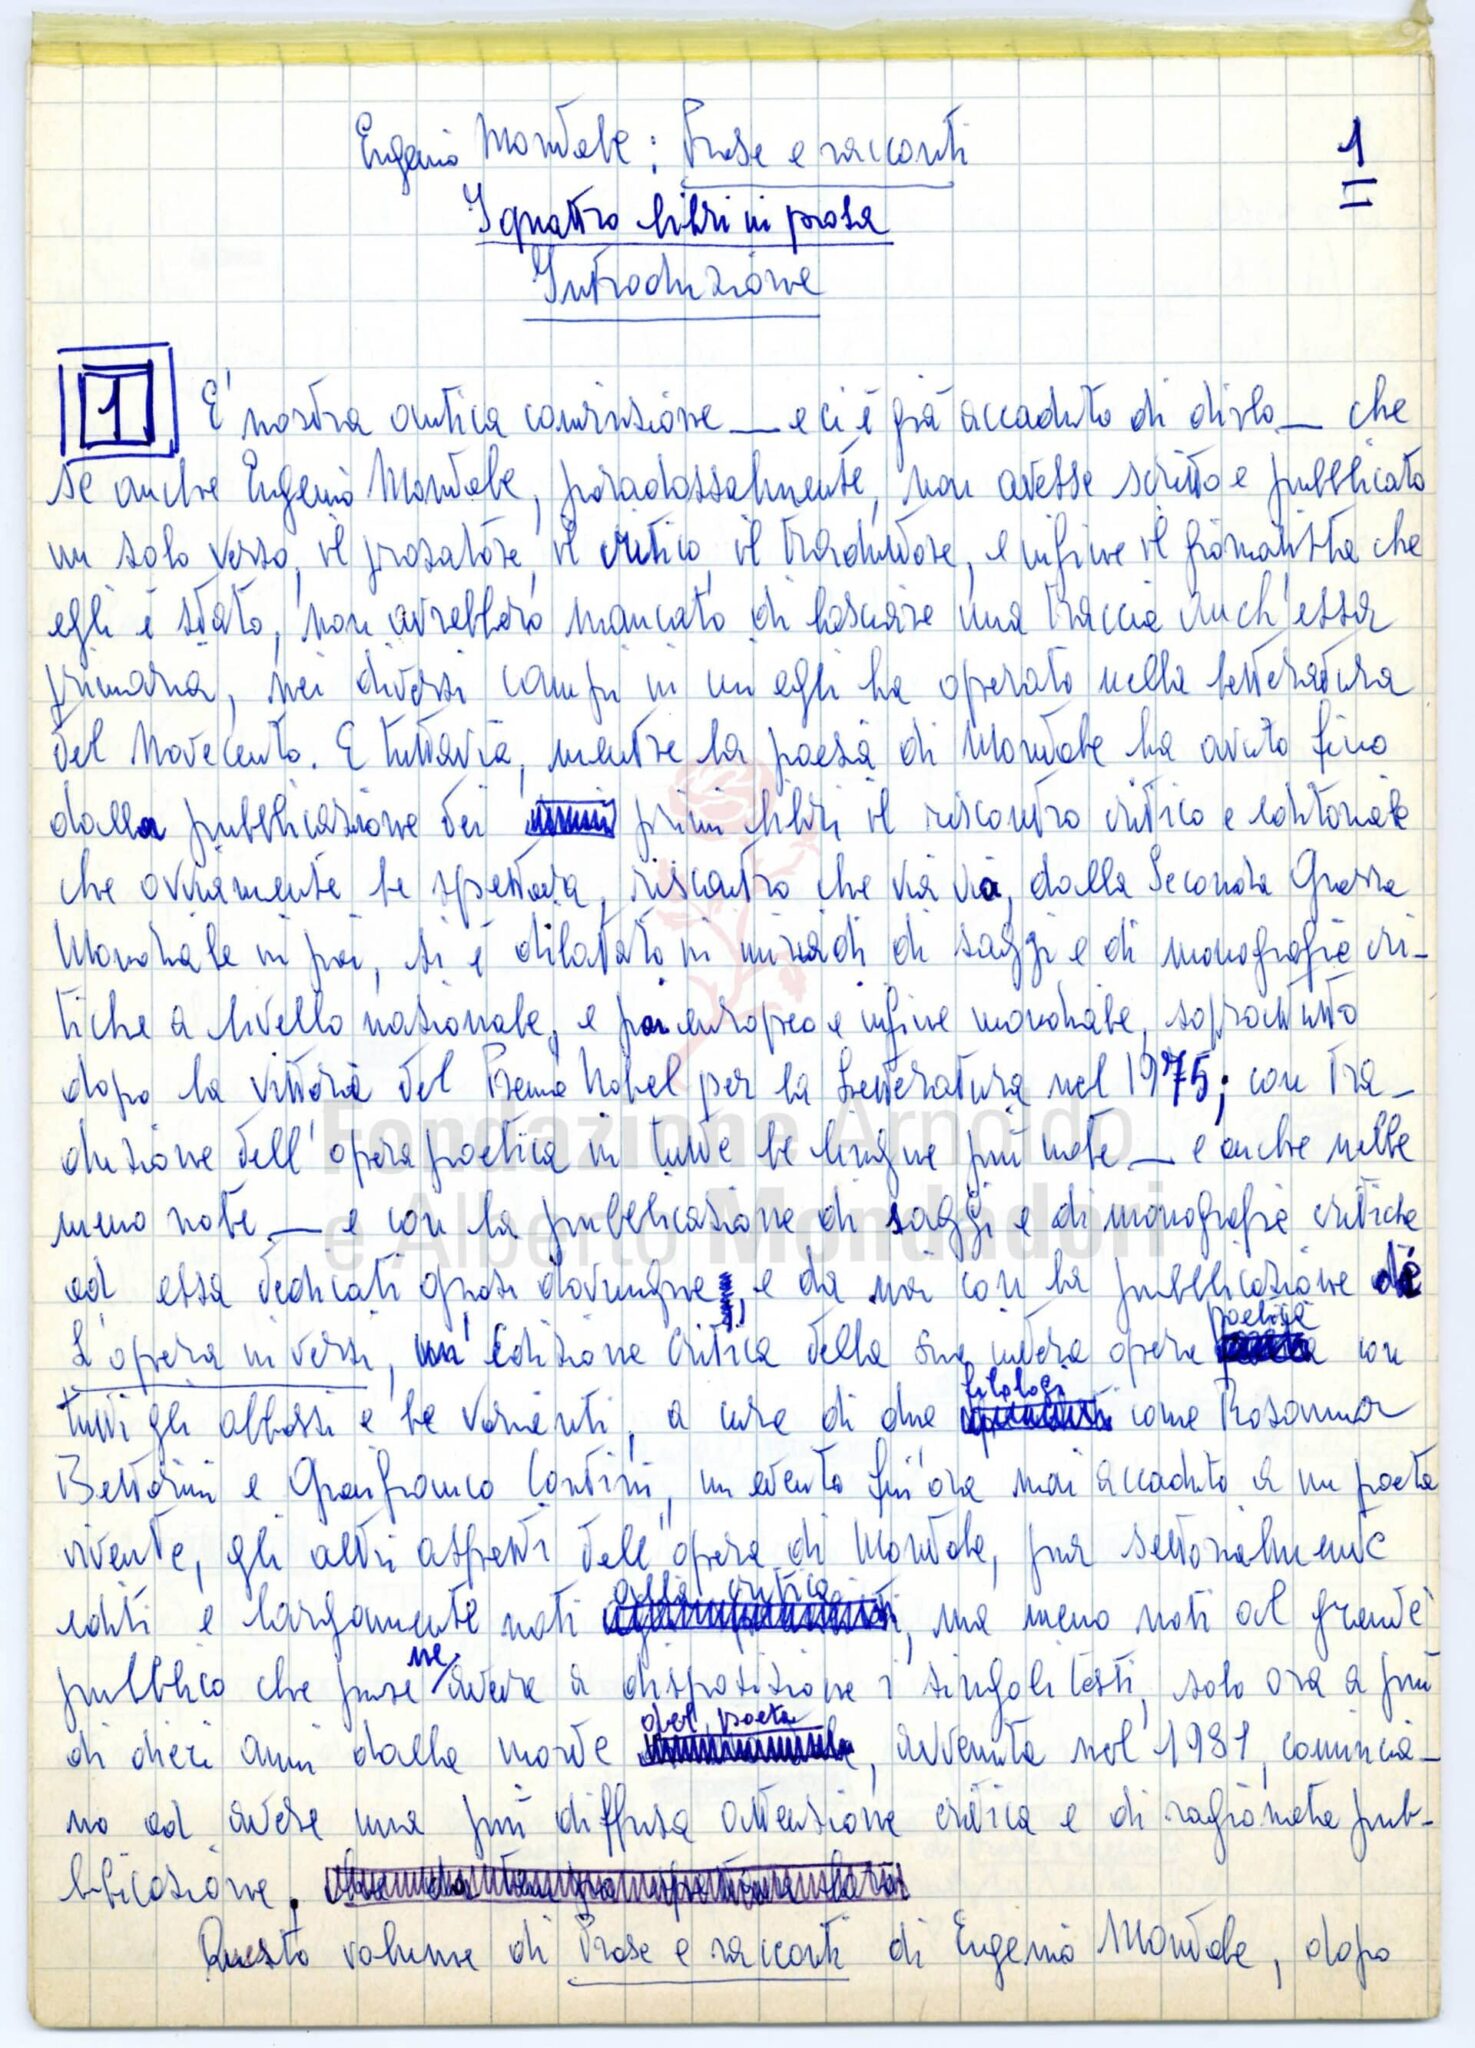 Eugenio Montale: Prose e racconti
1
I quattro libri in prosa
Introduzione
1
E' nostra antica convinzione — e ci è già accaduto di dirlo — che
se anche Eugenio Montale, paradossalmente, non avesse scritto e pubblicato
un solo verso, il prosatore, il critico, il traduttore, e infine il giornalista che
egli è stato, non avrebbero mancato di lasciare una traccia anch'essa
primaria, nei diversi campi in cui egli ha operato nella letteratura
del Novecento. E tuttavia, mentre la poesia di Montale ha avuto fino
dalla pubblicazione dei primi libri il riscontro critico e editoriale
che ovviamente le spettava, riscontro che via via, dalla Seconda Guerra
Mondiale in poi, si è dilatato in miriadi di saggi e di monografie cri-
tiche a livello nazionale, e poi europeo e infine mondiale, soprattutto
dopo la vittoria del Premio Nobel per la Letteratura nel 1975; con tra-
duzione dell'opera poetica in tutte le lingue più note — e anche nelle
meno note — e con la pubblicazione di saggi e di monografie critiche
ad essa dedicati quasi dovunque, e da noi con la pubblicazione de
L'opera in versi, un'edizione critica della sua intera opera poetica con
tutti gli abbozzi e le varianti, a cura di due filologi come Rosanna
Bettarini e Gianfranco Contini, un evento fin'ora mai accaduto a un poeta
vivente, gli altri aspetti dell'opera di Montale, pur settorialmente
editi e largamente noti alla critica, ma meno noti al grande
pubblico che pure ne aveva a disposizione i singoli testi, solo ora a più
di dieci anni dalla morte del poeta, avvenuta nel 1981, comincia-
no ad avere una più diffusa attenzione critica e di ragionata pub-
blicazione.
Questo volume di Prose e racconti di Eugenio Montale, dopo
Fondazione Arnoldo
e Alberto Mondadori